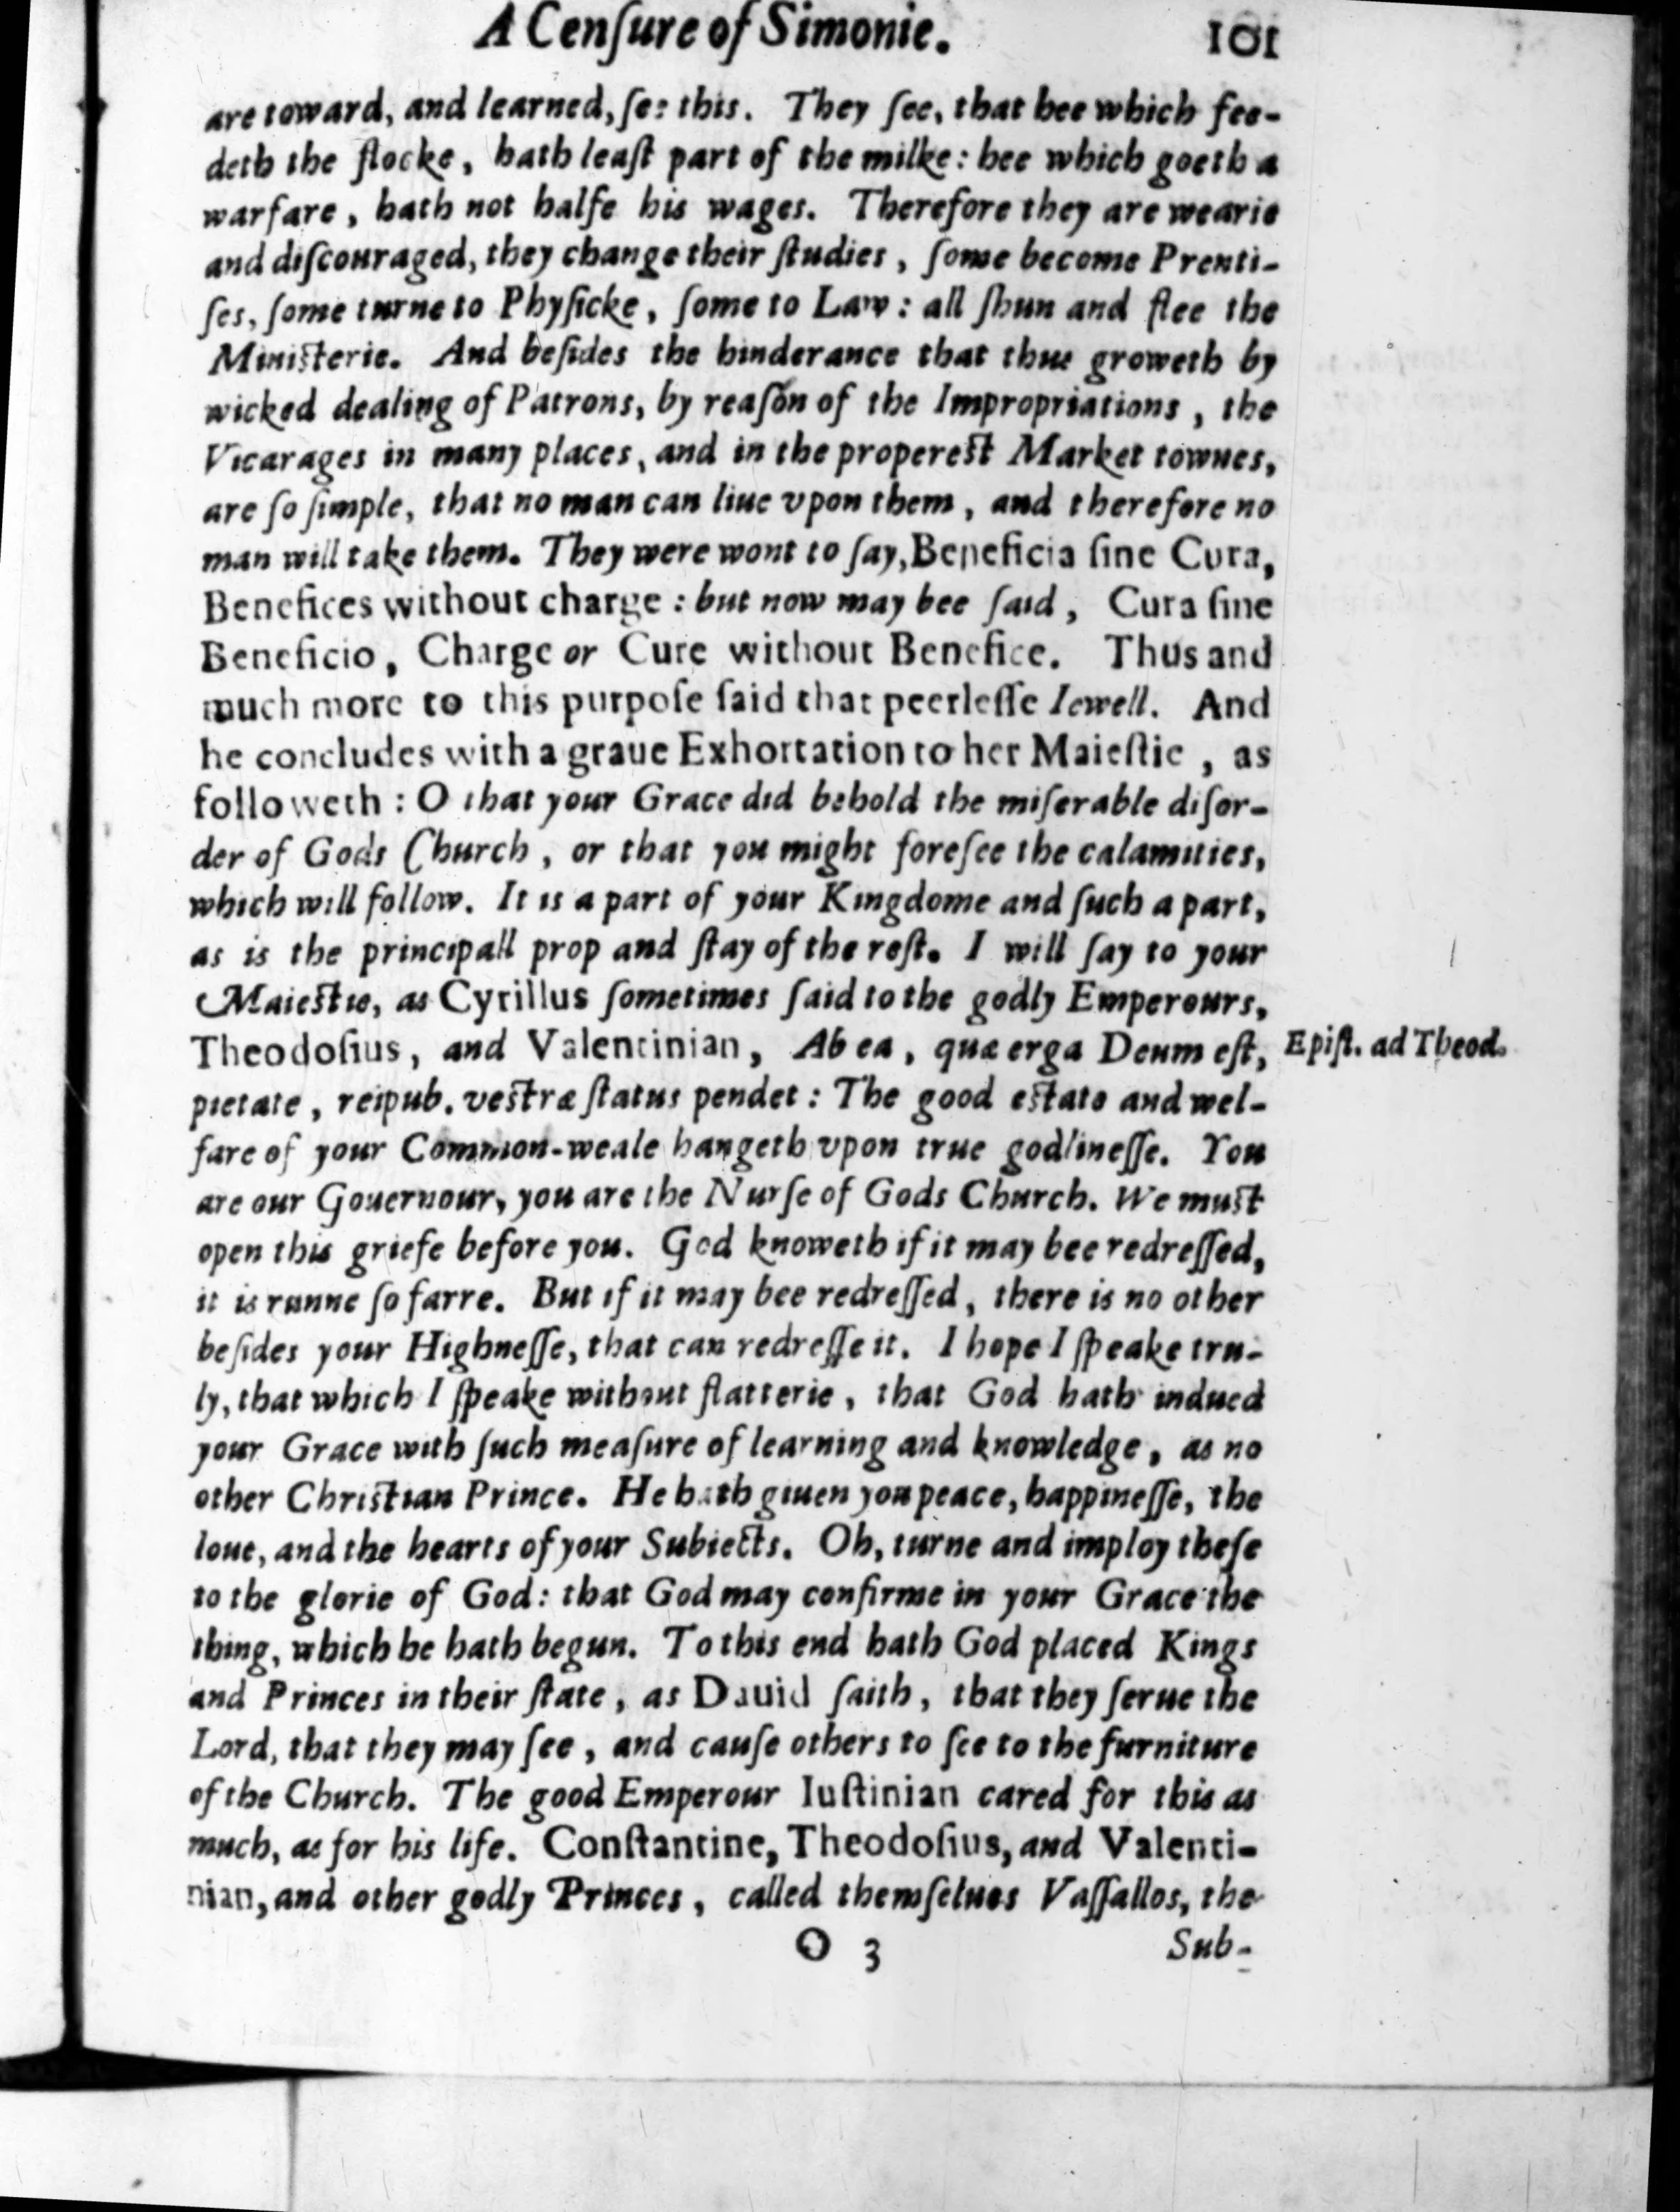 A Cenſure of Simonie. 101
are toward, and learned, ſee this. They ſee, that hee which fee-
deth the flocke, hath leaſt part of the milke: hee which goeth a
warfare, hath not halfe his wages. Therefore they are wearie
and diſcouraged, they change their ſtudies, ſome become Prenti-
ſes, ſome turne to Phyſicke, ſome to Law: all ſhun and flee the
Miniſterie. And beſides the hinderance that thus groweth by
wicked dealing of Patrons, by reaſon of the Impropriations, the
Vicarages in many places, and in the propereſt Market townes,
are ſo ſimple, that no man can liue vpon them, and therefore no
man will take them. They were wont to ſay, Beneficia ſine Cura,
Benefices without charge: but now may bee ſaid, Cura ſine
Beneficio, Charge or Cure without Benefice. Thus and
much more to this purpoſe ſaid that peerleſſe Iewell. And
he concludes with a graue Exhortation to her Maieſtie, as
followeth: O that your Grace did behold the miſerable diſor-
der of Gods Church, or that you might foreſee the calamities,
which will follow. It is a part of your Kingdome and ſuch a part,
as is the principall prop and ſtay of the reſt. I will ſay to your
Maieſtie, as Cyrillus ſometimes ſaid to the godly Emperours,
Theodoſius, and Valentinian, Ab ea, quæ erga Deum eſt,
Epiſt. ad Theod.
pietate, reipub. veſtræ ſtatus pendet: The good eſtate and wel-
fare of your Common-weale hangeth vpon true godlineſſe. You
are our Gouernour, you are the Nurſe of Gods Church. We muſt
open this griefe before you. God knoweth if it may bee redreſſed,
it is runne ſo farre. But if it may bee redreſſed, there is no other
beſides your Highneſſe, that can redreſſe it. I hope I ſpeake tru-
ly, that which I ſpeake without flatterie, that God hath indued
your Grace with ſuch meaſure of learning and knowledge, as no
other Chriſtian Prince. He hath giuen you peace, happineſſe, the
loue, and the hearts of your Subiects. Oh, turne and imploy theſe
to the glorie of God: that God may confirme in your Grace the
thing, which he hath begun. To this end hath God placed Kings
and Princes in their ſtate, as Dauid ſaith, that they ſerue the
Lord, that they may ſee, and cauſe others to ſee to the furniture
of the Church. The good Emperour Iuſtinian cared for this as
much, as for his life. Conſtantine, Theodoſius, and Valenti-
nian, and other godly Princes, called themſelues Vaſſallos, the
O 3 Sub-